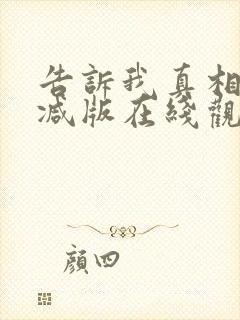 告訴我真相
减版在綫觀
顔四